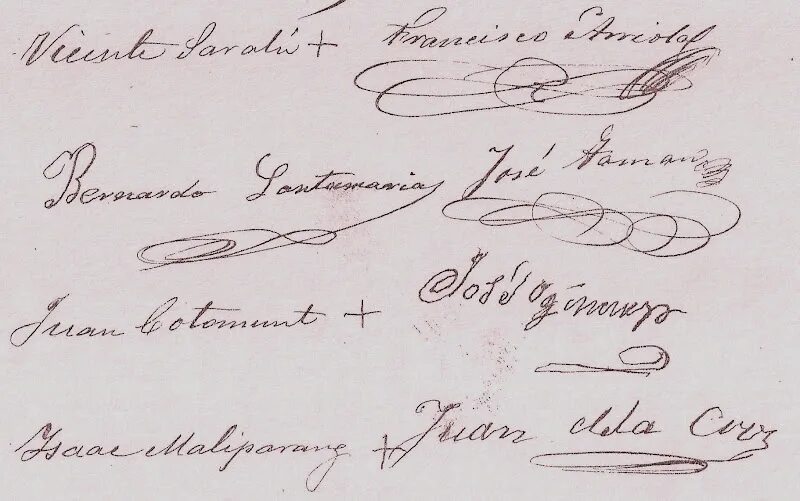 Vicente Saralú + Francisco Arriola
Bernardo Santamaria José Roman
Juan Cotamunt + José Ximenez
Isaac Maliparang + Juan dela Cruz